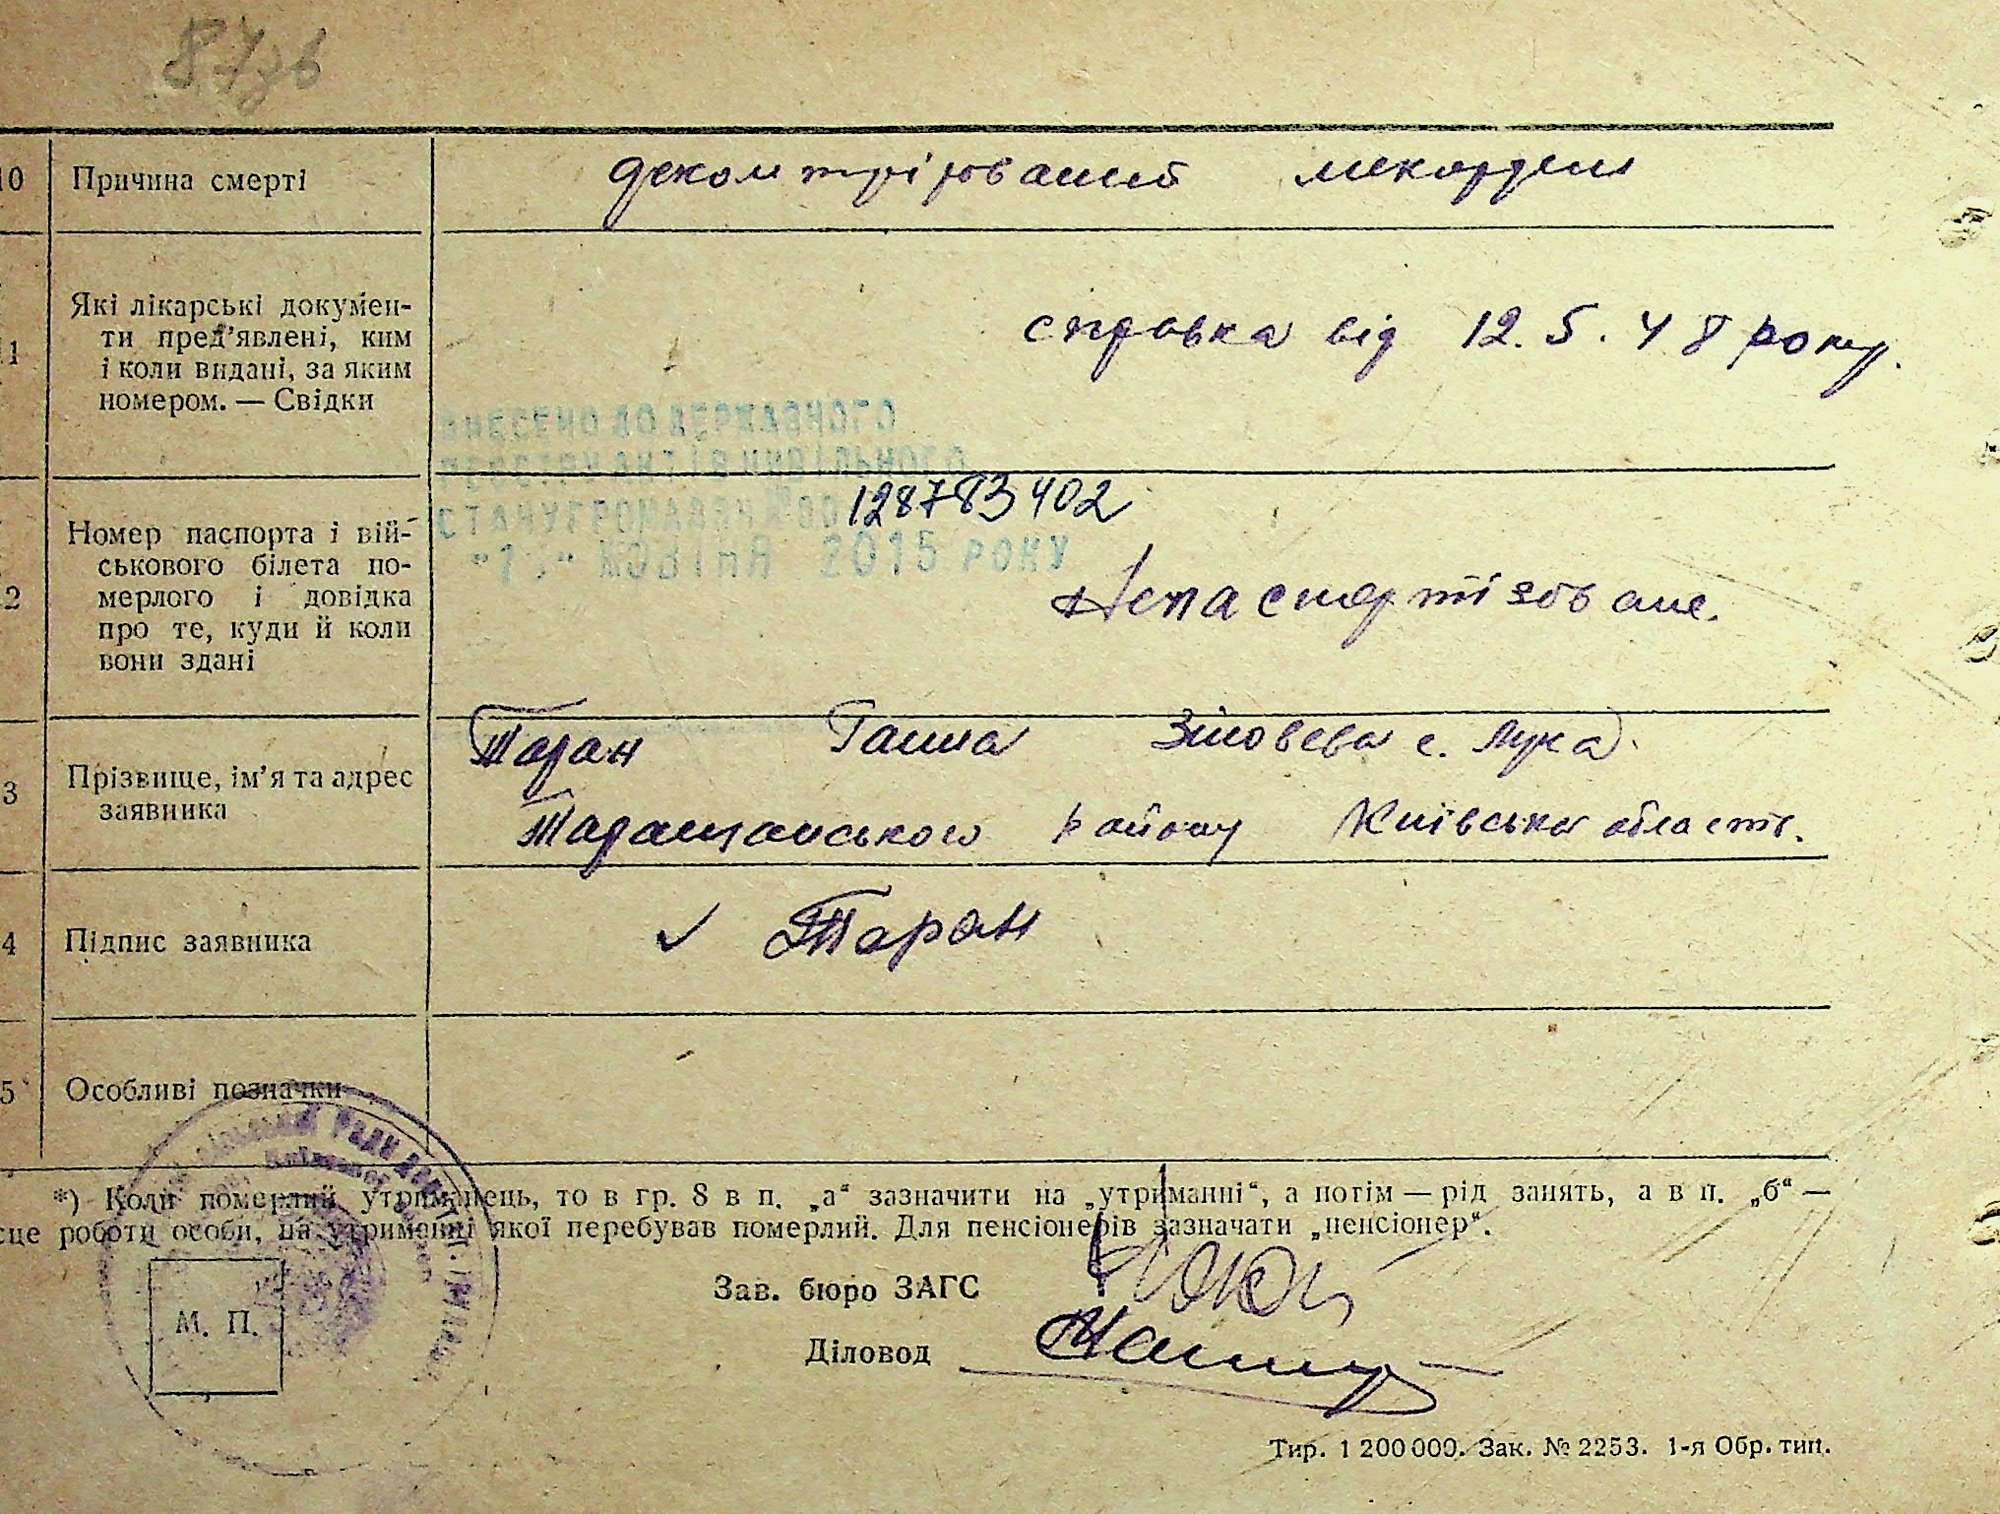 87зв
10 Причина смерті
декомпрірований міокардит
11 Які лікарські документи пред'явлені, ким і коли видані, за яким номером. — Свідки
справка від 12.5.48 року.
ВНЕСЕНО ДО ДЕРЖАВНОГО
РЕЄСТРУ АКТІВ ЦИВІЛЬНОГО
СТАНУ ГРОМАДЯН № 00128783402
ЖОВТНЯ 2015 РОКУ
12 Номер паспорта і військового білета померлого і довідка про те, куди й коли вони здані
Непаспортізоване.
13 Прізвище, ім'я та адрес заявника
Таран Ганна Зіновєва с. Лука
Таращанського району Київська область.
14 Підпис заявника
✓ Таран
15 Особливі позначки
*) Коли померлий утриманець, то в гр. 8 в п. „а“ зазначити на „утриманні“, а потім — рід занять, а в п. „б“ —
місце роботи особи, на утриманні якої перебував померлий. Для пенсіонерів зазначати „пенсіонер“.
Зав. бюро ЗАГС
М. П.
Діловод
Тир. 1 200 000. Зак. № 2253. 1-я Обр. тип.